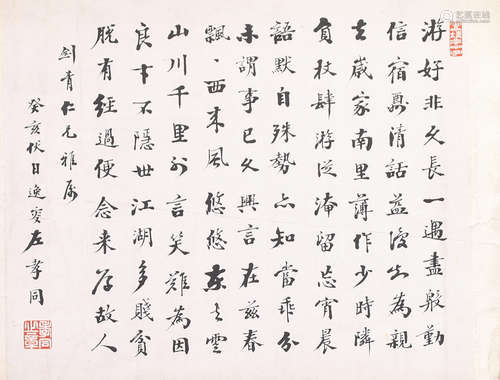 游好非久長一遇盡殷勤
信宿酬清話益復知為親
去歲家南里薄作少時隣
負杖肆游從淹留忘宵晨
語默自殊勢亦知當乖分
未謂事已及興言在茲春
飄、西來風悠悠東去雲
山川千里外言笑難為因
良才不隱世江湖多賤貧
脫有經過便念來存故人
劍青仁兄雅屬
癸亥伏日逸叟左孝同